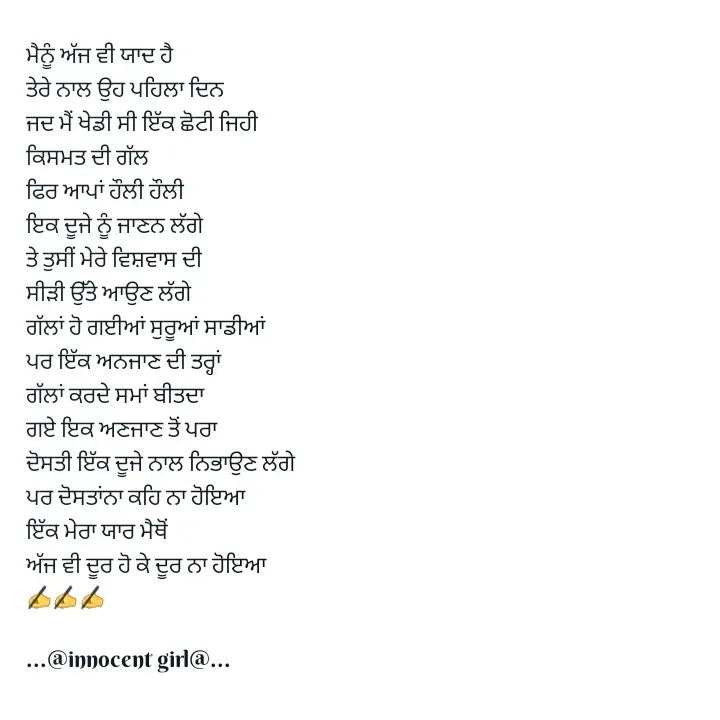 ਮੈਨੂੰ ਅੱਜ ਵੀ ਯਾਦ ਹੈ
ਤੇਰੇ ਨਾਲ ਉਹ ਪਹਿਲਾ ਦਿਨ
ਜਦ ਮੈਂ ਖੇਡੀ ਸੀ ਇੱਕ ਛੋਟੀ ਜਿਹੀ
ਕਿਸਮਤ ਦੀ ਗੱਲ
ਫਿਰ ਆਪਾਂ ਹੌਲੀ ਹੌਲੀ
ਇਕ ਦੂਜੇ ਨੂੰ ਜਾਣਨ ਲੱਗੇ
ਤੇ ਤੁਸੀਂ ਮੇਰੇ ਵਿਸ਼ਵਾਸ ਦੀ
ਸੀੜੀ ਉੱਤੇ ਆਉਣ ਲੱਗੇ
ਗੱਲਾਂ ਹੋ ਗਈਆਂ ਸੁਰੂਆਂ ਸਾਡੀਆਂ
ਪਰ ਇੱਕ ਅਨਜਾਣ ਦੀ ਤਰ੍ਹਾਂ
ਗੱਲਾਂ ਕਰਦੇ ਸਮਾਂ ਬੀਤਦਾ
ਗਏ ਇਕ ਅਣਜਾਣ ਤੋਂ ਪਰਾ
ਦੋਸਤੀ ਇੱਕ ਦੂਜੇ ਨਾਲ ਨਿਭਾਉਣ ਲੱਗੇ
ਪਰ ਦੋਸਤਾਂਨਾ ਕਹਿ ਨਾ ਹੋਇਆ
ਇੱਕ ਮੇਰਾ ਯਾਰ ਮੈਥੋਂ
ਅੱਜ ਵੀ ਦੂਰ ਹੋ ਕੇ ਦੂਰ ਨਾ ਹੋਇਆ
✍✍✍
...@innocent girl@...